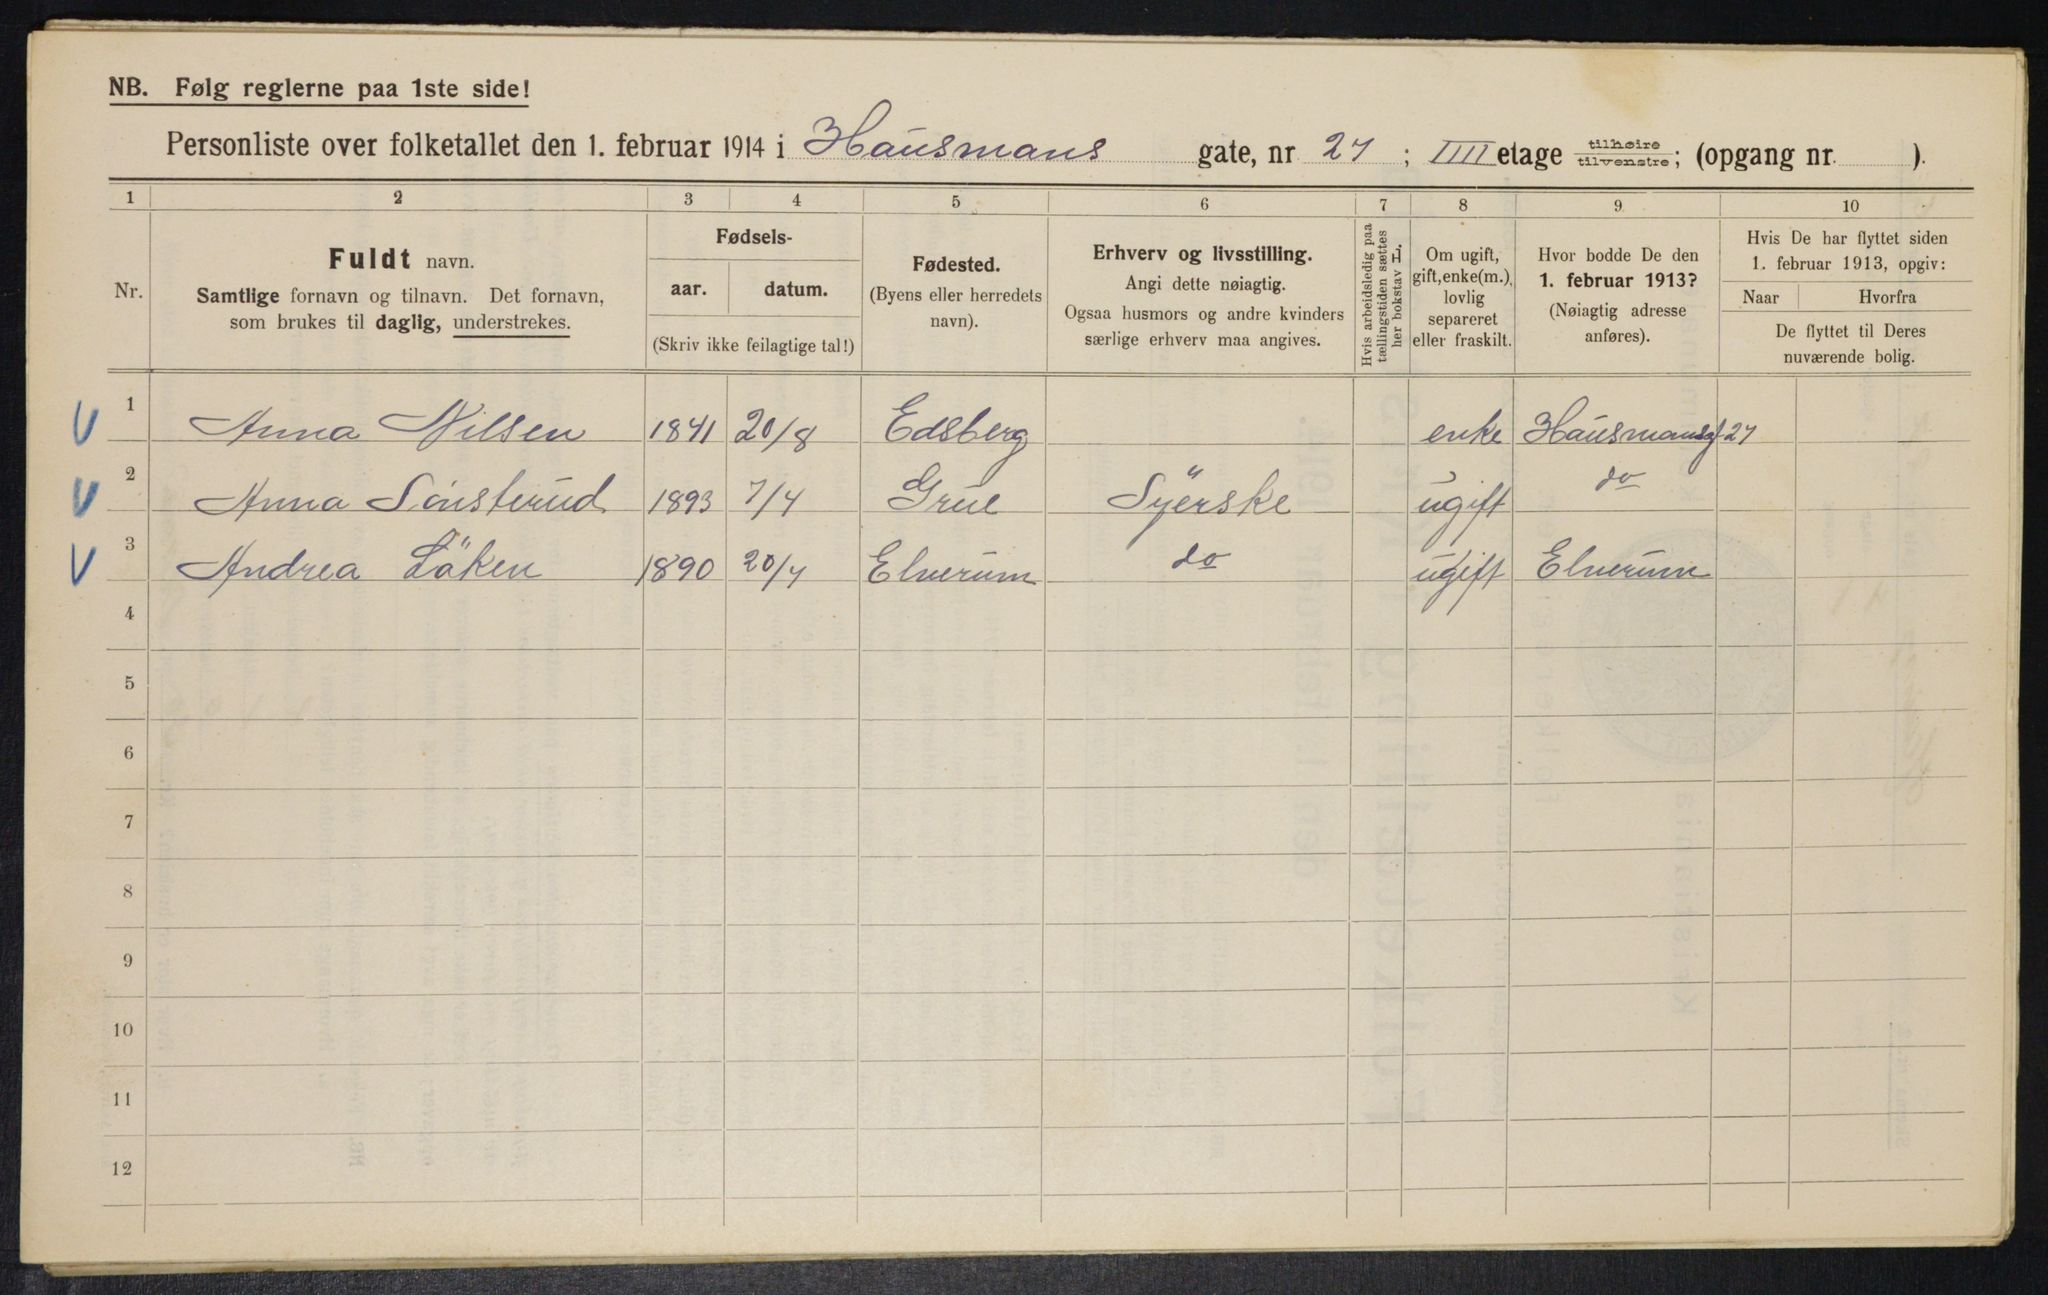 NB. Følg reglerne paa 1ste side!
Personliste over folketallet den 1. februar 1914 i Hausmans gate, nr 27; IIII etage tilhøire tilvenstre; (opgang nr. ).
1 2 3 4 5 6 7 8 9 10
Nr.
Fuldt navn.
Samtlige fornavn og tilnavn. Det fornavn,
som brukes til daglig, understrekes.
Fødsels-
aar. datum.
(Skriv ikke feilagtige tal!)
Fødested.
(Byens eller herredets
navn).
Erhverv og livsstilling.
Angi dette nøiagtig.
Ogsaa husmors og andre kvinders
særlige erhverv maa angives.
Hvis arbeidsledig paa
tællingstiden sættes
her bokstav L.
Om ugift,
gift, enke(m.),
lovlig
separeret
eller fraskilt.
Hvor bodde De den
1. februar 1913?
(Nøiagtig adresse
anføres).
Hvis De har flyttet siden
1. februar 1913, opgiv:
Naar Hvorfra
De flyttet til Deres
nuværende bolig.
1 Anna Nilsen 1841 20/8 Edsberg enke Hausmansg 27
2 Anna Sönsterud 1893 7/4 Grue Syerske ugift do
3 Andrea Löken 1890 20/7 Elverum do ugift Elverum
4
5
6
7
8
9
10
11
12